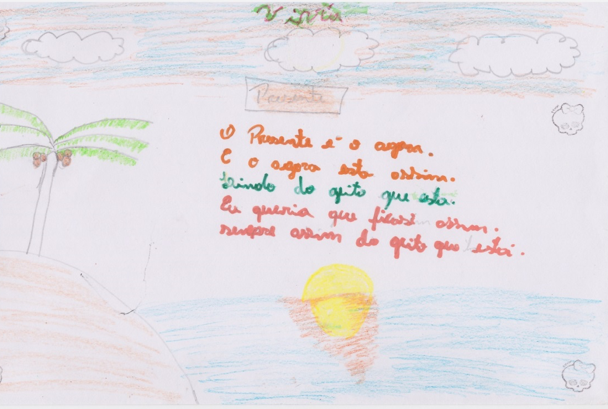 Presente
O Presente é o agora.
E o agora esta assim.
lindo do geito que esta.
Eu queria que assim.
sempre assim do geito que está.